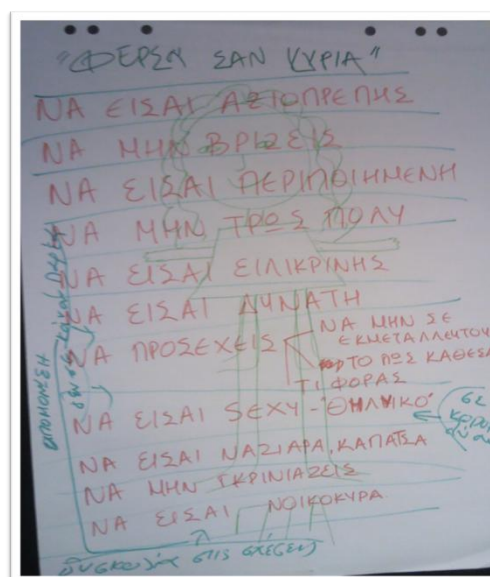 "ΦΕΡΣΟΥ ΣΑΝ ΚΥΡΙΑ"
ΝΑ ΕΙΣΑΙ ΑΞΙΟΠΡΕΠΗΣ
ΝΑ ΜΗΝ ΒΡΙΖΕΙΣ
ΝΑ ΕΙΣΑΙ ΠΕΡΙΠΟΙΗΜΕΝΗ
ΝΑ ΜΗΝ ΤΡΩΣ ΠΟΛΥ
ΝΑ ΕΙΣΑΙ ΕΙΛΙΚΡΙΝΗΣ
ΝΑ ΕΙΣΑΙ ΔΥΝΑΤΗ
ΝΑ ΠΡΟΣΕΧΕΙΣ
ΝΑ ΜΗΝ ΣΕ
ΕΚΜΕΤΑΛΛΕΥΤΟΥ
ΤΟ ΠΩΣ ΚΑΘΕΣΑ
ΤΙ ΦΟΡΑΣ
ΝΑ ΕΙΣΑΙ SEXY - ΘΗΛΥΚΟ
ΝΑ ΕΙΣΑΙ ΝΑΖΙΑΡΑ, ΚΑΠΑΤΣΑ
ΝΑ ΜΗΝ ΓΚΡΙΝΙΑΖΕΙΣ
ΝΑ ΕΙΣΑΙ ΝΟΙΚΟΚΥΡΑ
δυσκολία στις σχέσεις
ΑΠΟΜΟΝΩΣΗ